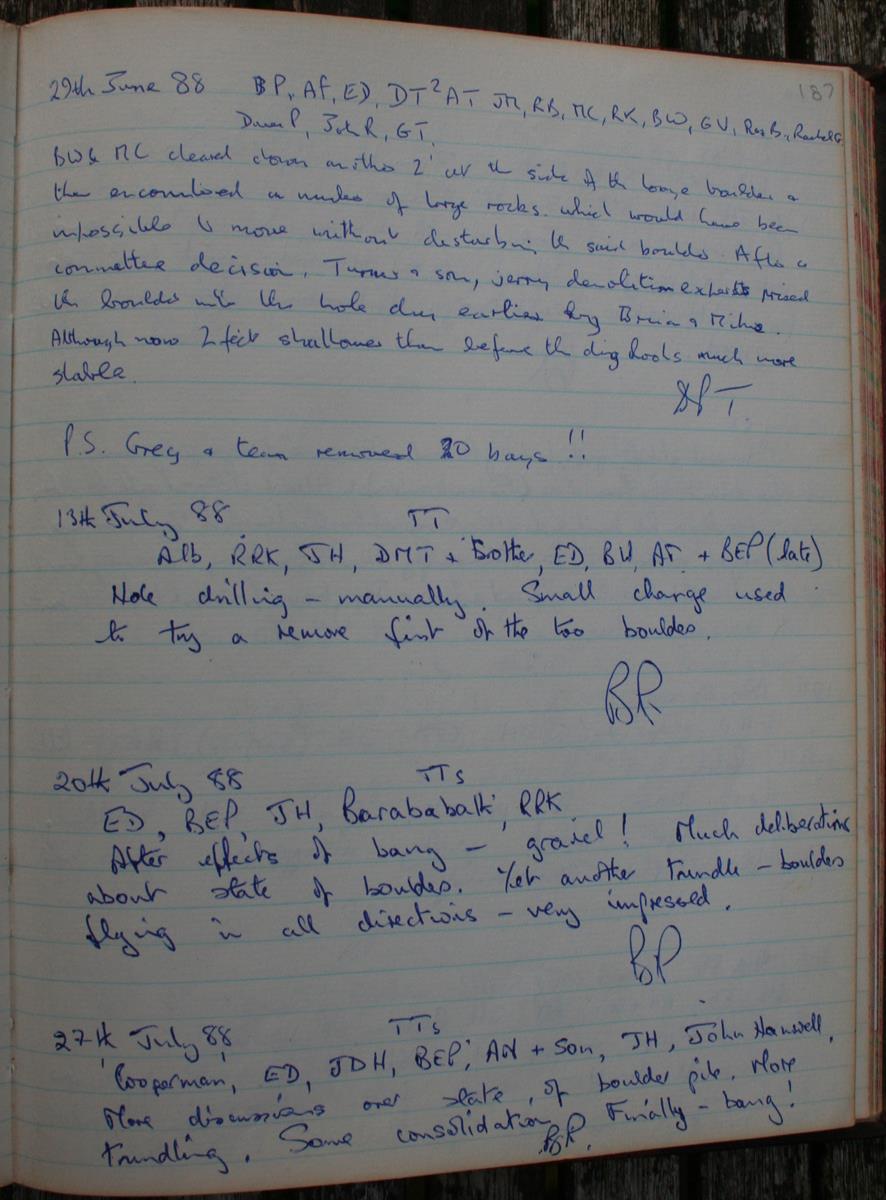 187
29th June 88 BP, AF, ED, DT² AT JH, RB, MC, RK, BW, GV, Ros B, Rachel G
Dave P, John R, GT.
BW & MC cleared down another 2' at the side of the large boulder &
then encountered a number of large rocks. which would have been
impossible to move without disturbing the said boulder. After a
committee decision, Turner & son, jerry demolition experts prised
the boulder into the hole dug earlier by Brian & Mike.
Although now 2 feet shallower than before the dig looks much more
stable.
DPT.
P.S. Greg & team removed 20 bags !!
13th July 88 TT
Alb, RRK, JH, DMT + Brother, ED, BW, AF + BEP (late)
Hole drilling – manually. Small charge used
to try & remove first of the two boulders.
BP.
20th July 88 TTs
ED, BEP, JH, Barababatti, RRK
After effects of bang – gravel! Much deliberations
about state of boulders. Yet another trundle – boulders
flying in all directions – very impressed.
BP
27th July 88 TTs
'Cooperman', ED, JDH, BEP, AN + Son, JH, John Hanwell,
More discussions over state of boulder pile. More
trundling. Some consolidation. Finally – bang!
BP.